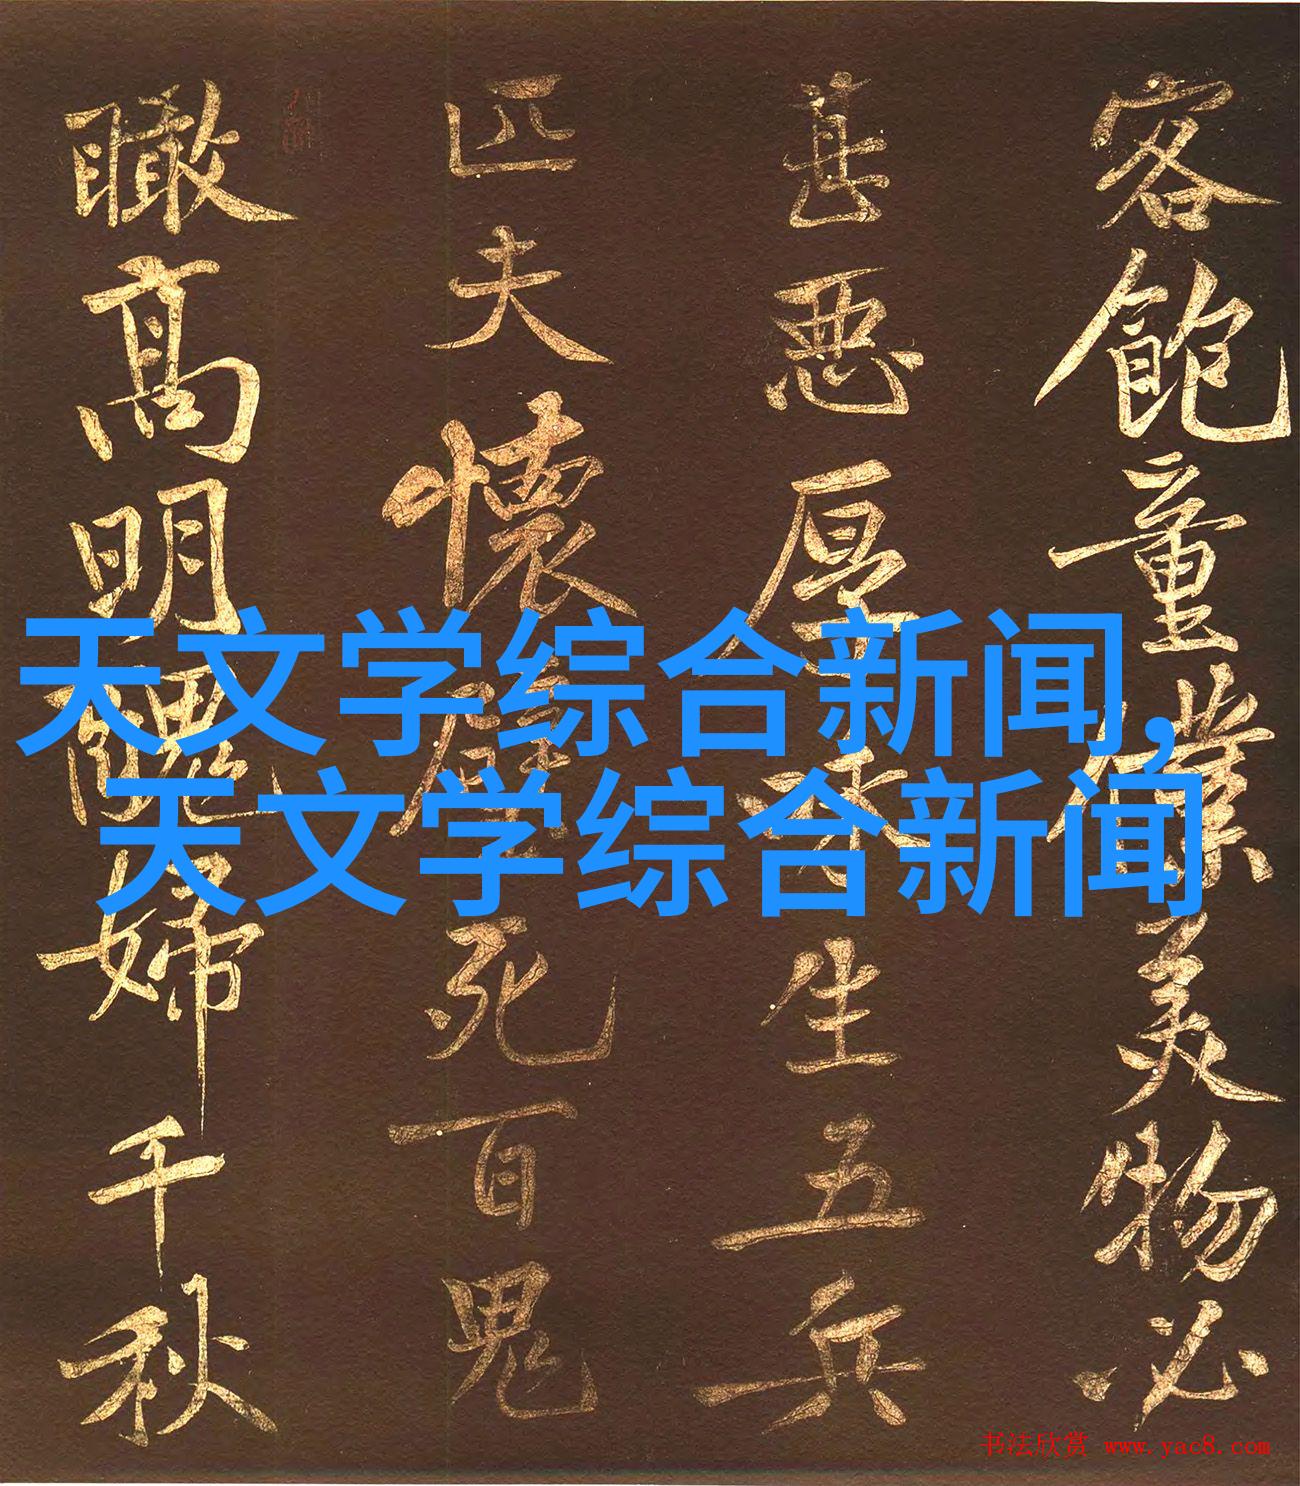 客飽童僕美物必
甚惡厚味生五兵
匹夫懷璧死百鬼
瞰高明醜婦千秋
天文学综合新闻,
天文学综合新闻
书法欣赏 www.yac8.com